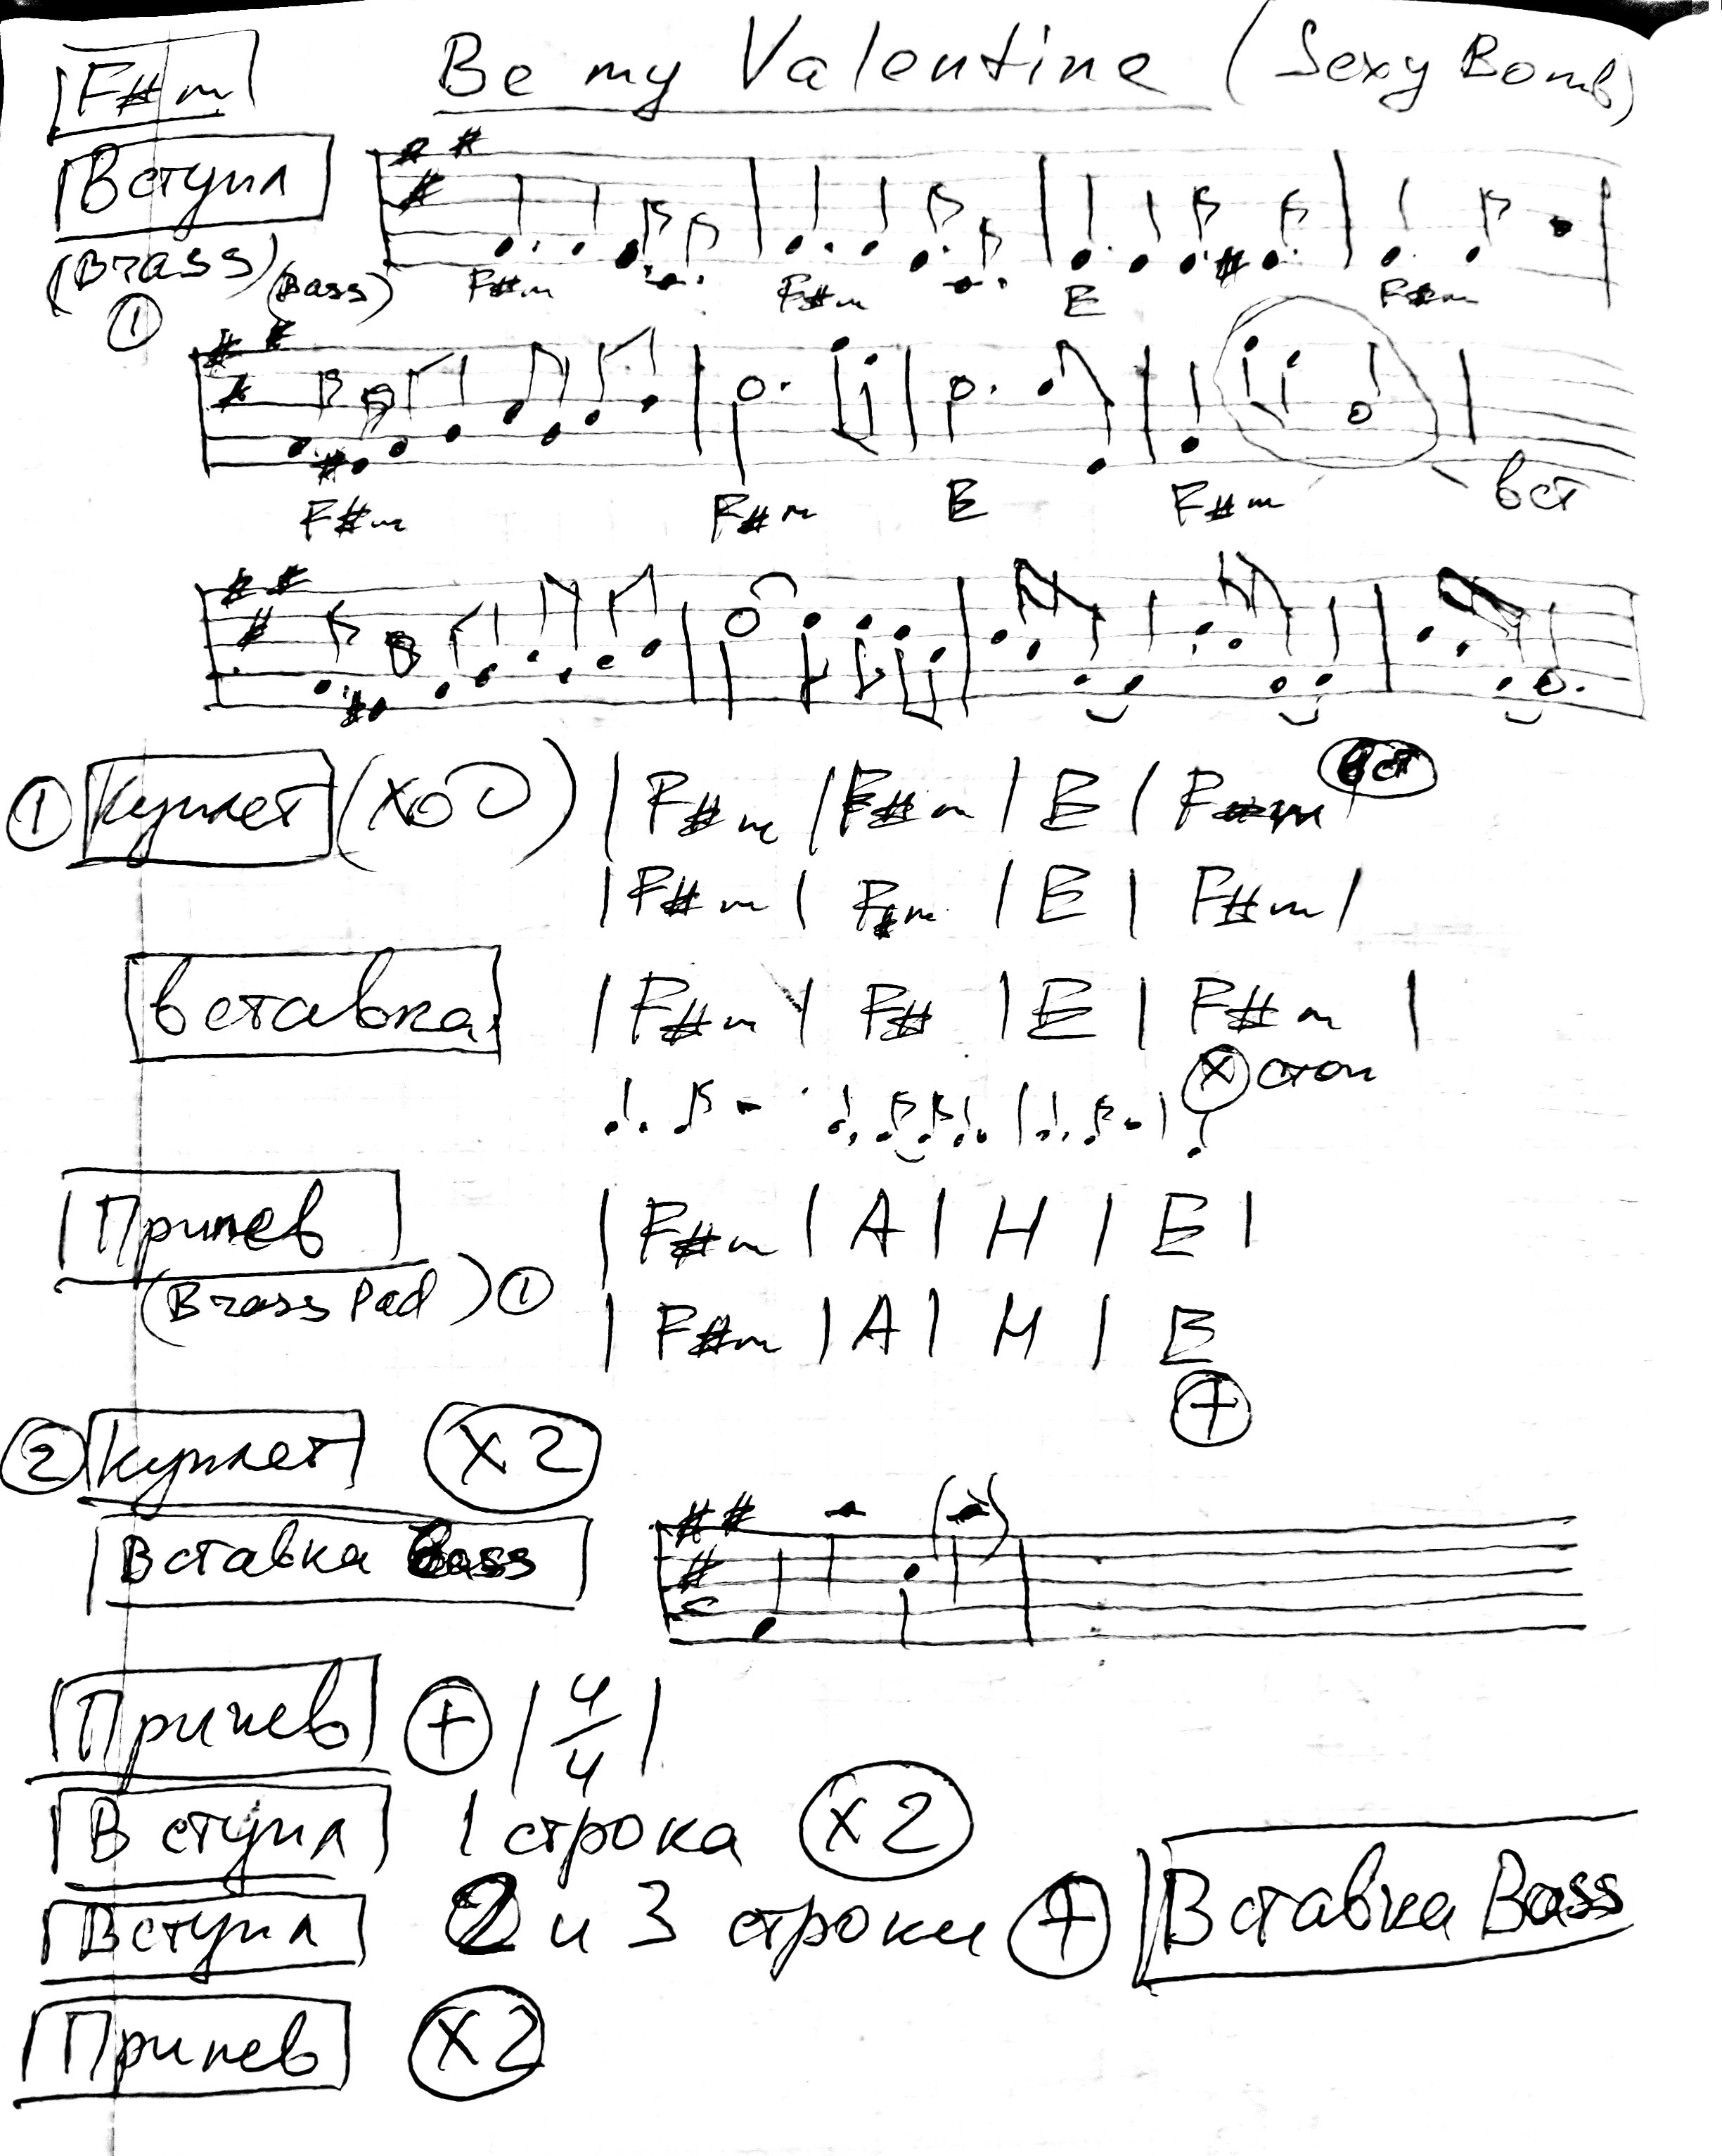 F#m Be my Valentine (Sexy Bomb)
Вступл
(Brass) (Bass) F#m F#m E F#m
①
F#m F#m E F#m вст
① Куплет (ход) | F#m | F#m | E | F#m вст
| F#m | F#m | E | F#m |
вставка | F#m | F# | E | F#m |
X стоп
Припев | F#m | A | H | E |
(Brass Pad) ① | F#m | A | H | E
+
② Куплет X2
Вставка Bass
Припев + | 4/4 |
Вступл 1 строка X2
Вступл 2 и 3 строки + Вставка Bass
Припев X2